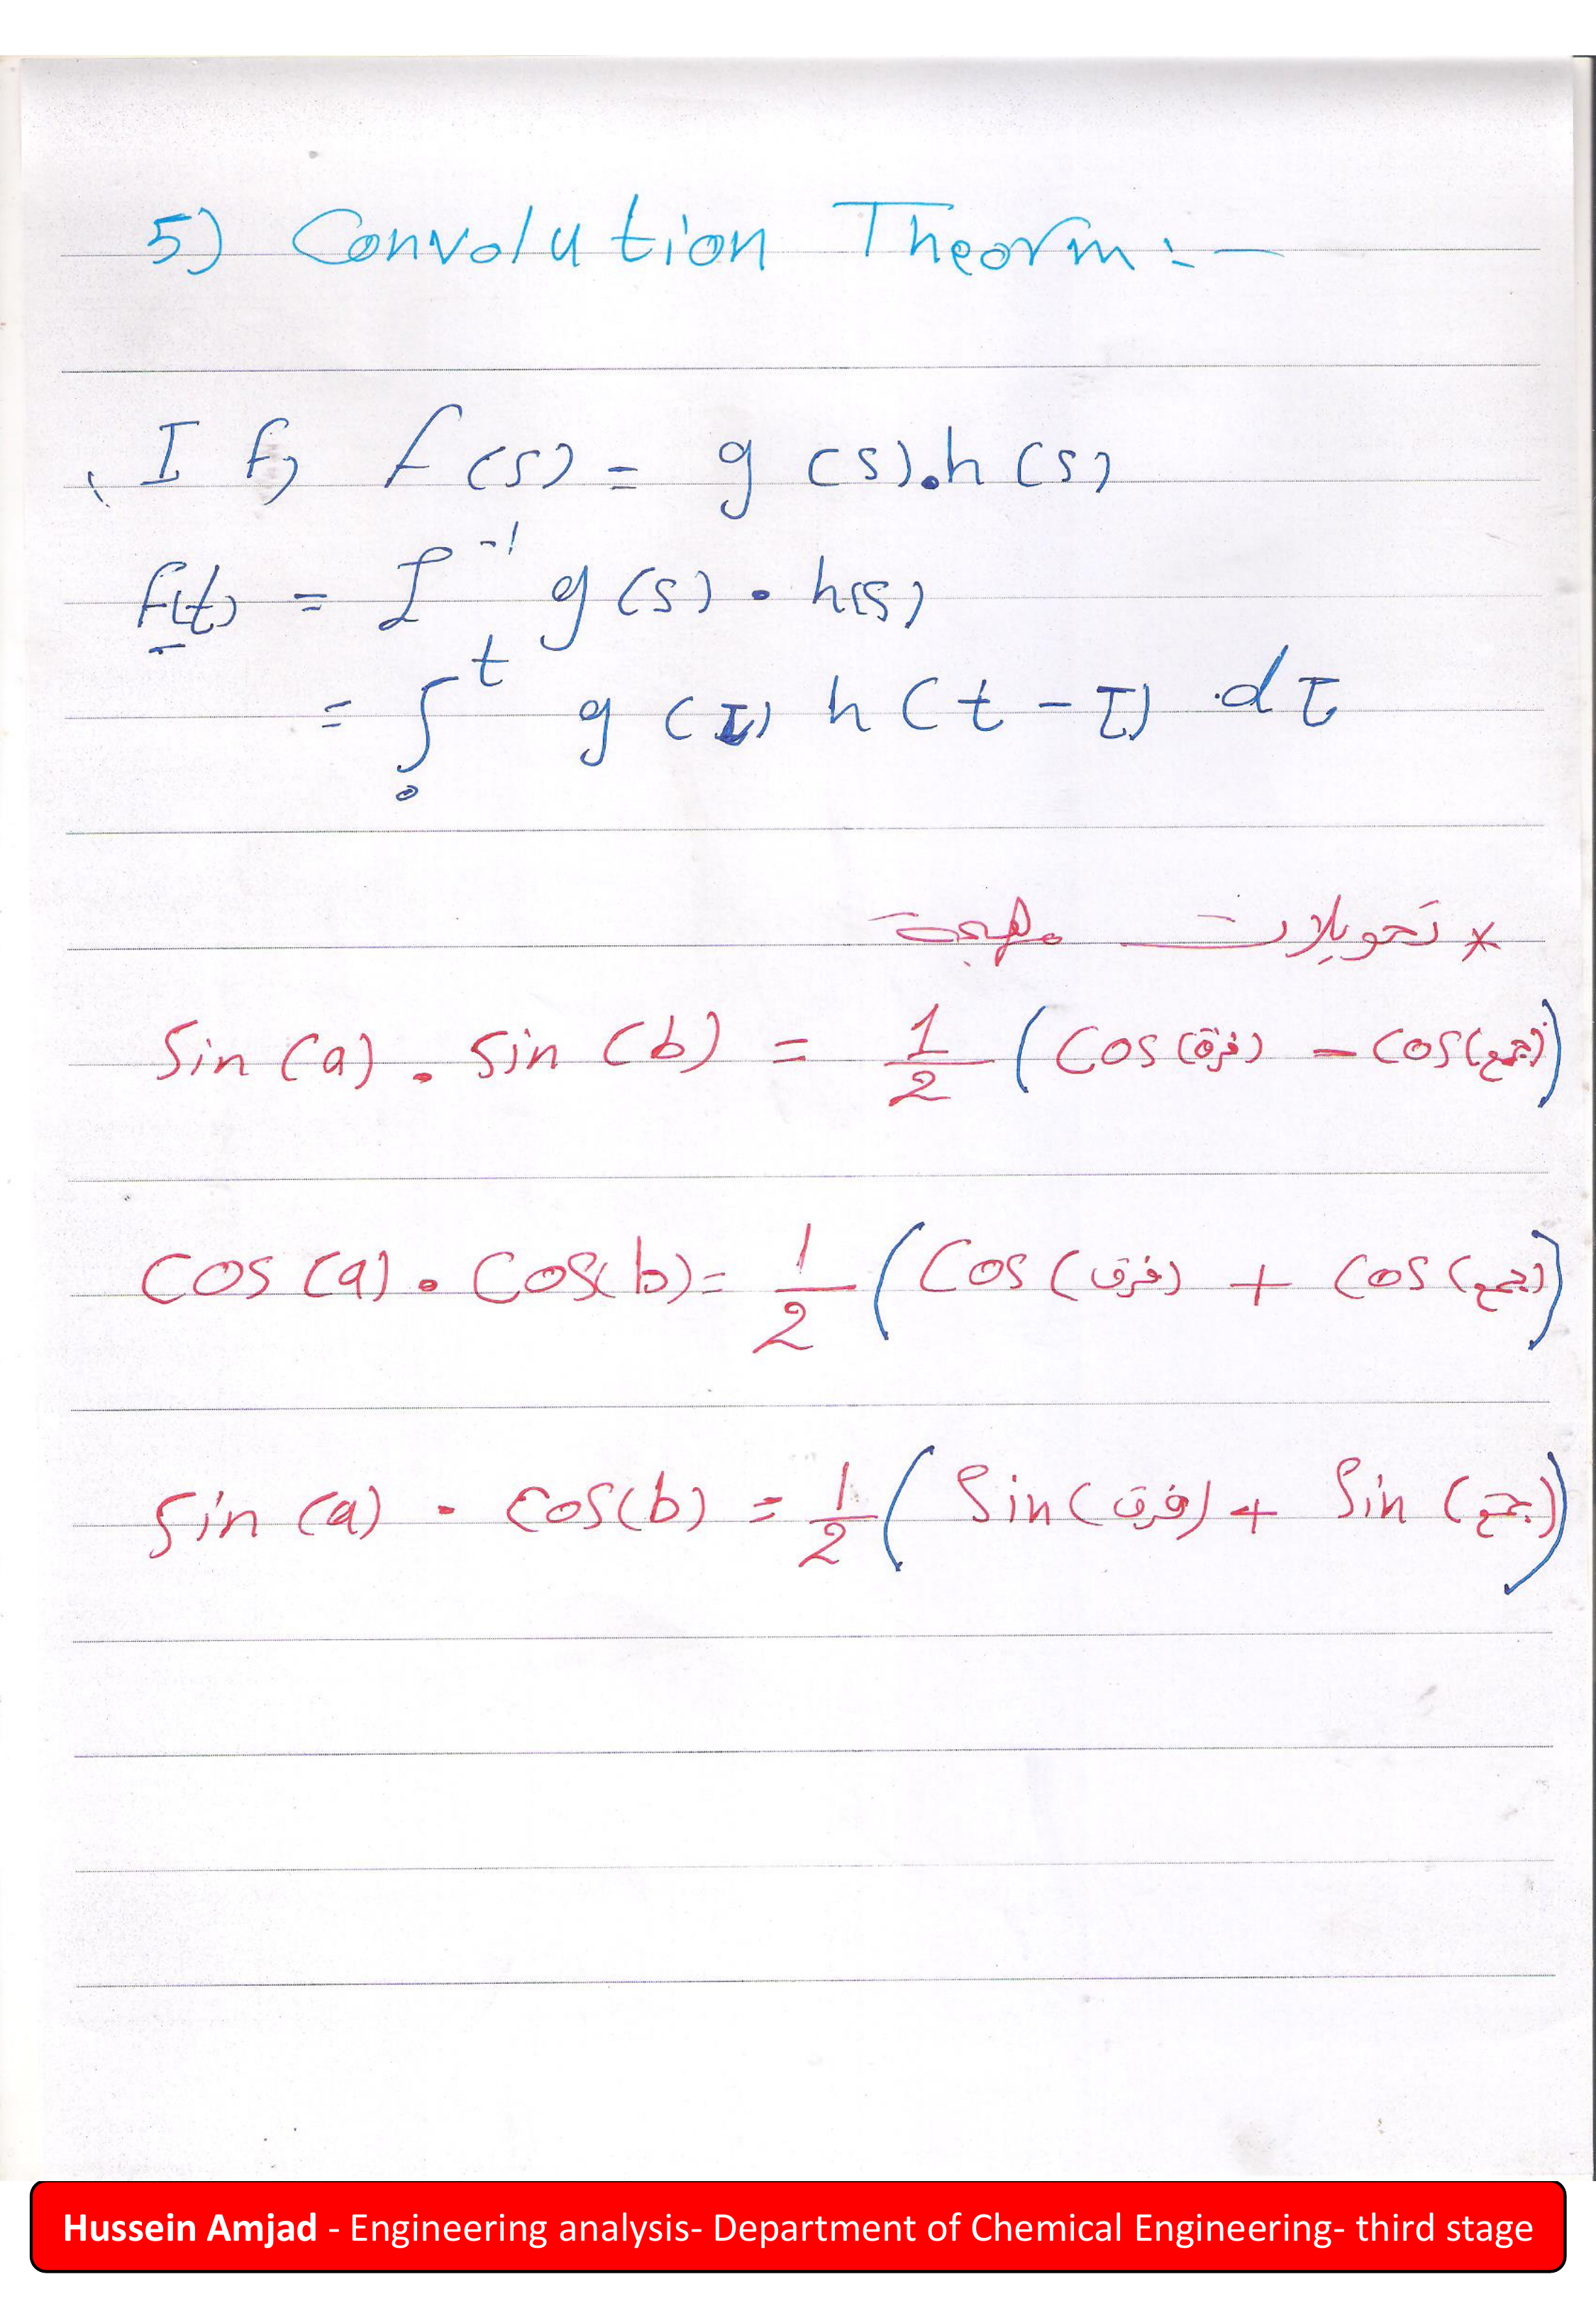 5) Convolution Theorm :-
If, f(s) = g(s).h(s)
f(t) = ℒ⁻¹ g(s) . h(s)
= ∫₀ᵗ g(τ) h(t-τ) .dτ
* تحويلات مهمة
Sin(a) . Sin(b) = 1/2 (Cos(فرق) - Cos(جمع))
Cos(a) . Cos(b) = 1/2 (Cos(فرق) + Cos(جمع))
Sin(a) . Cos(b) = 1/2 (Sin(فرق) + Sin(جمع))
Hussein Amjad - Engineering analysis- Department of Chemical Engineering- third stage